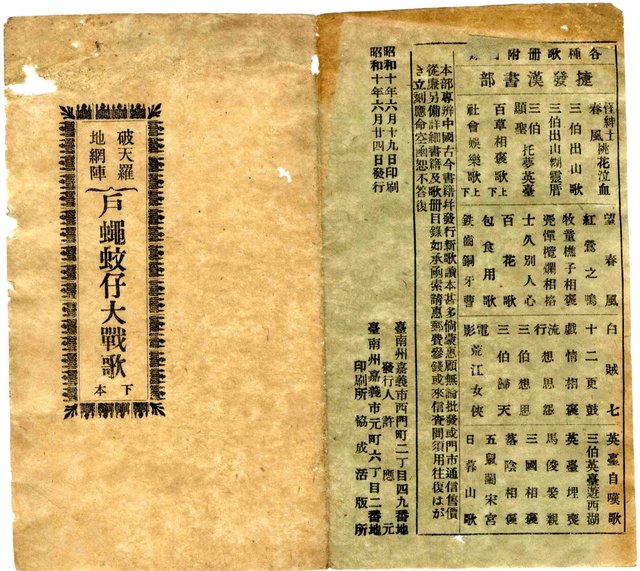 各種歌册附錄
捷發漢書部
怪紳士 桃花泣血
春風
三伯出山歌
三伯出山糊靈厝
三伯托夢英臺
顯聖
百草相褒歌上下
社會娛樂歌上下
望春風
紅鶯之鳴
牧童樵子相褒
覺憚欖爛相格
士久別人心
百花歌
包食用歌
鉄齒銅牙曹
白賊七
十二更鼓
戲情相褒
流行想思怨
三伯想思
三伯歸天
電影荒江女俠
英臺自嘆歌
三伯英臺遊西湖
英臺埋喪
馬俊娶親
三國相褒
落陰相褒
五鼠鬧宋宮
日暮山歌
本部專辦中國古今書籍幷發行新歌讀本甚多倘蒙惠顧無論批發或門市通信售價
從廉另備詳細書籍及歌册目錄如承函索請惠郵費參錢或來信查問須用往復はが
き立刻應命空函恕不答復
昭和十年六月十九日印刷
昭和十年六月廿四日發行
臺南州嘉義市西門町二丁目四九番地
發行人 許應元
臺南州嘉義市元町六丁目二番地
印刷所 協成活版所
破天羅
地網陣
戶蠅蚊仔大戰歌
下本